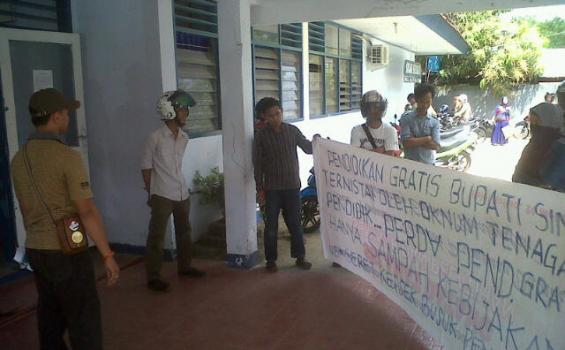 PENDIDIKAN GRATIS BUPATI SIN
TERNISTAK OLEH OKNUM TENAGA
PENDIDIK - PERDA PEND. GRAT
HANYA SAMPAH KEBIJAKAN
BUSUK